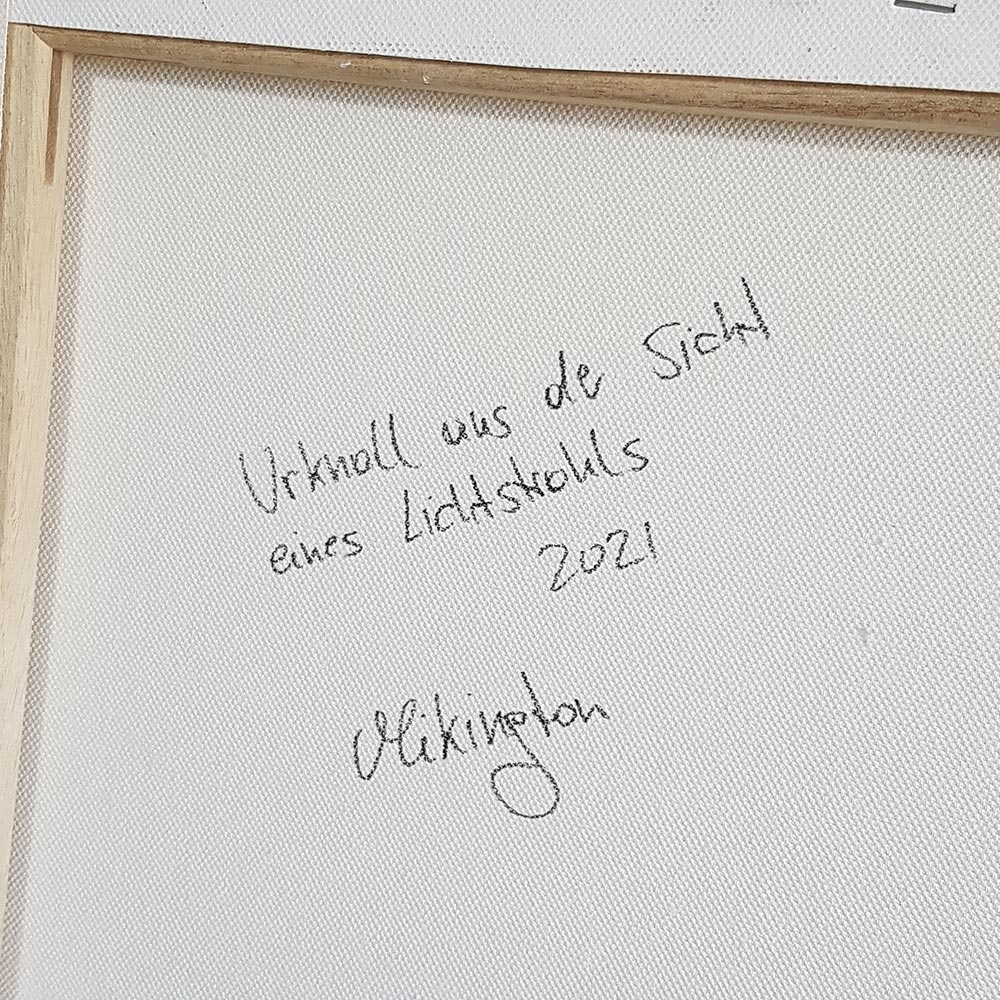 Urknall aus der Sicht
eines Lichtstrahls
2021
Mikington